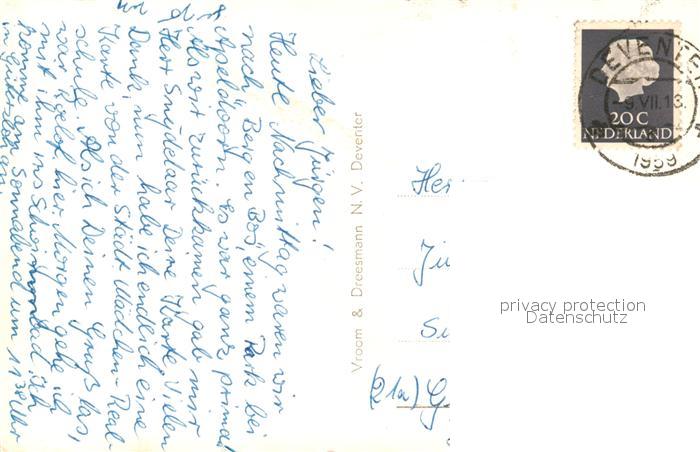 Lieber Jürgen!
Heute Nachmittag waren wir
nach "Berg en Bos", einem Park bei
Apeldoorn. Es war ganz prima!
Als wir zurückkamen gab mir
Herr Smudelaar Deine Karte. Vielen
Dank, nun habe ich endlich eine
Karte von der Städt. Mädchen-Real-
schule. Als ich Deinen Gruß las,
war Roelof hier. Morgen gehe ich
mit ihm ins Schwimmbad. Ich
komme am Sonnabend um 11 38 Uhr
in Gütersloh an.
Vroom & Dreesmann N.V. Deventer
DEVENTER
-9.VII.13.
1959
20 C
NEDERLAND
Her
Jü
(21a) G
privacy protection
Datenschutz